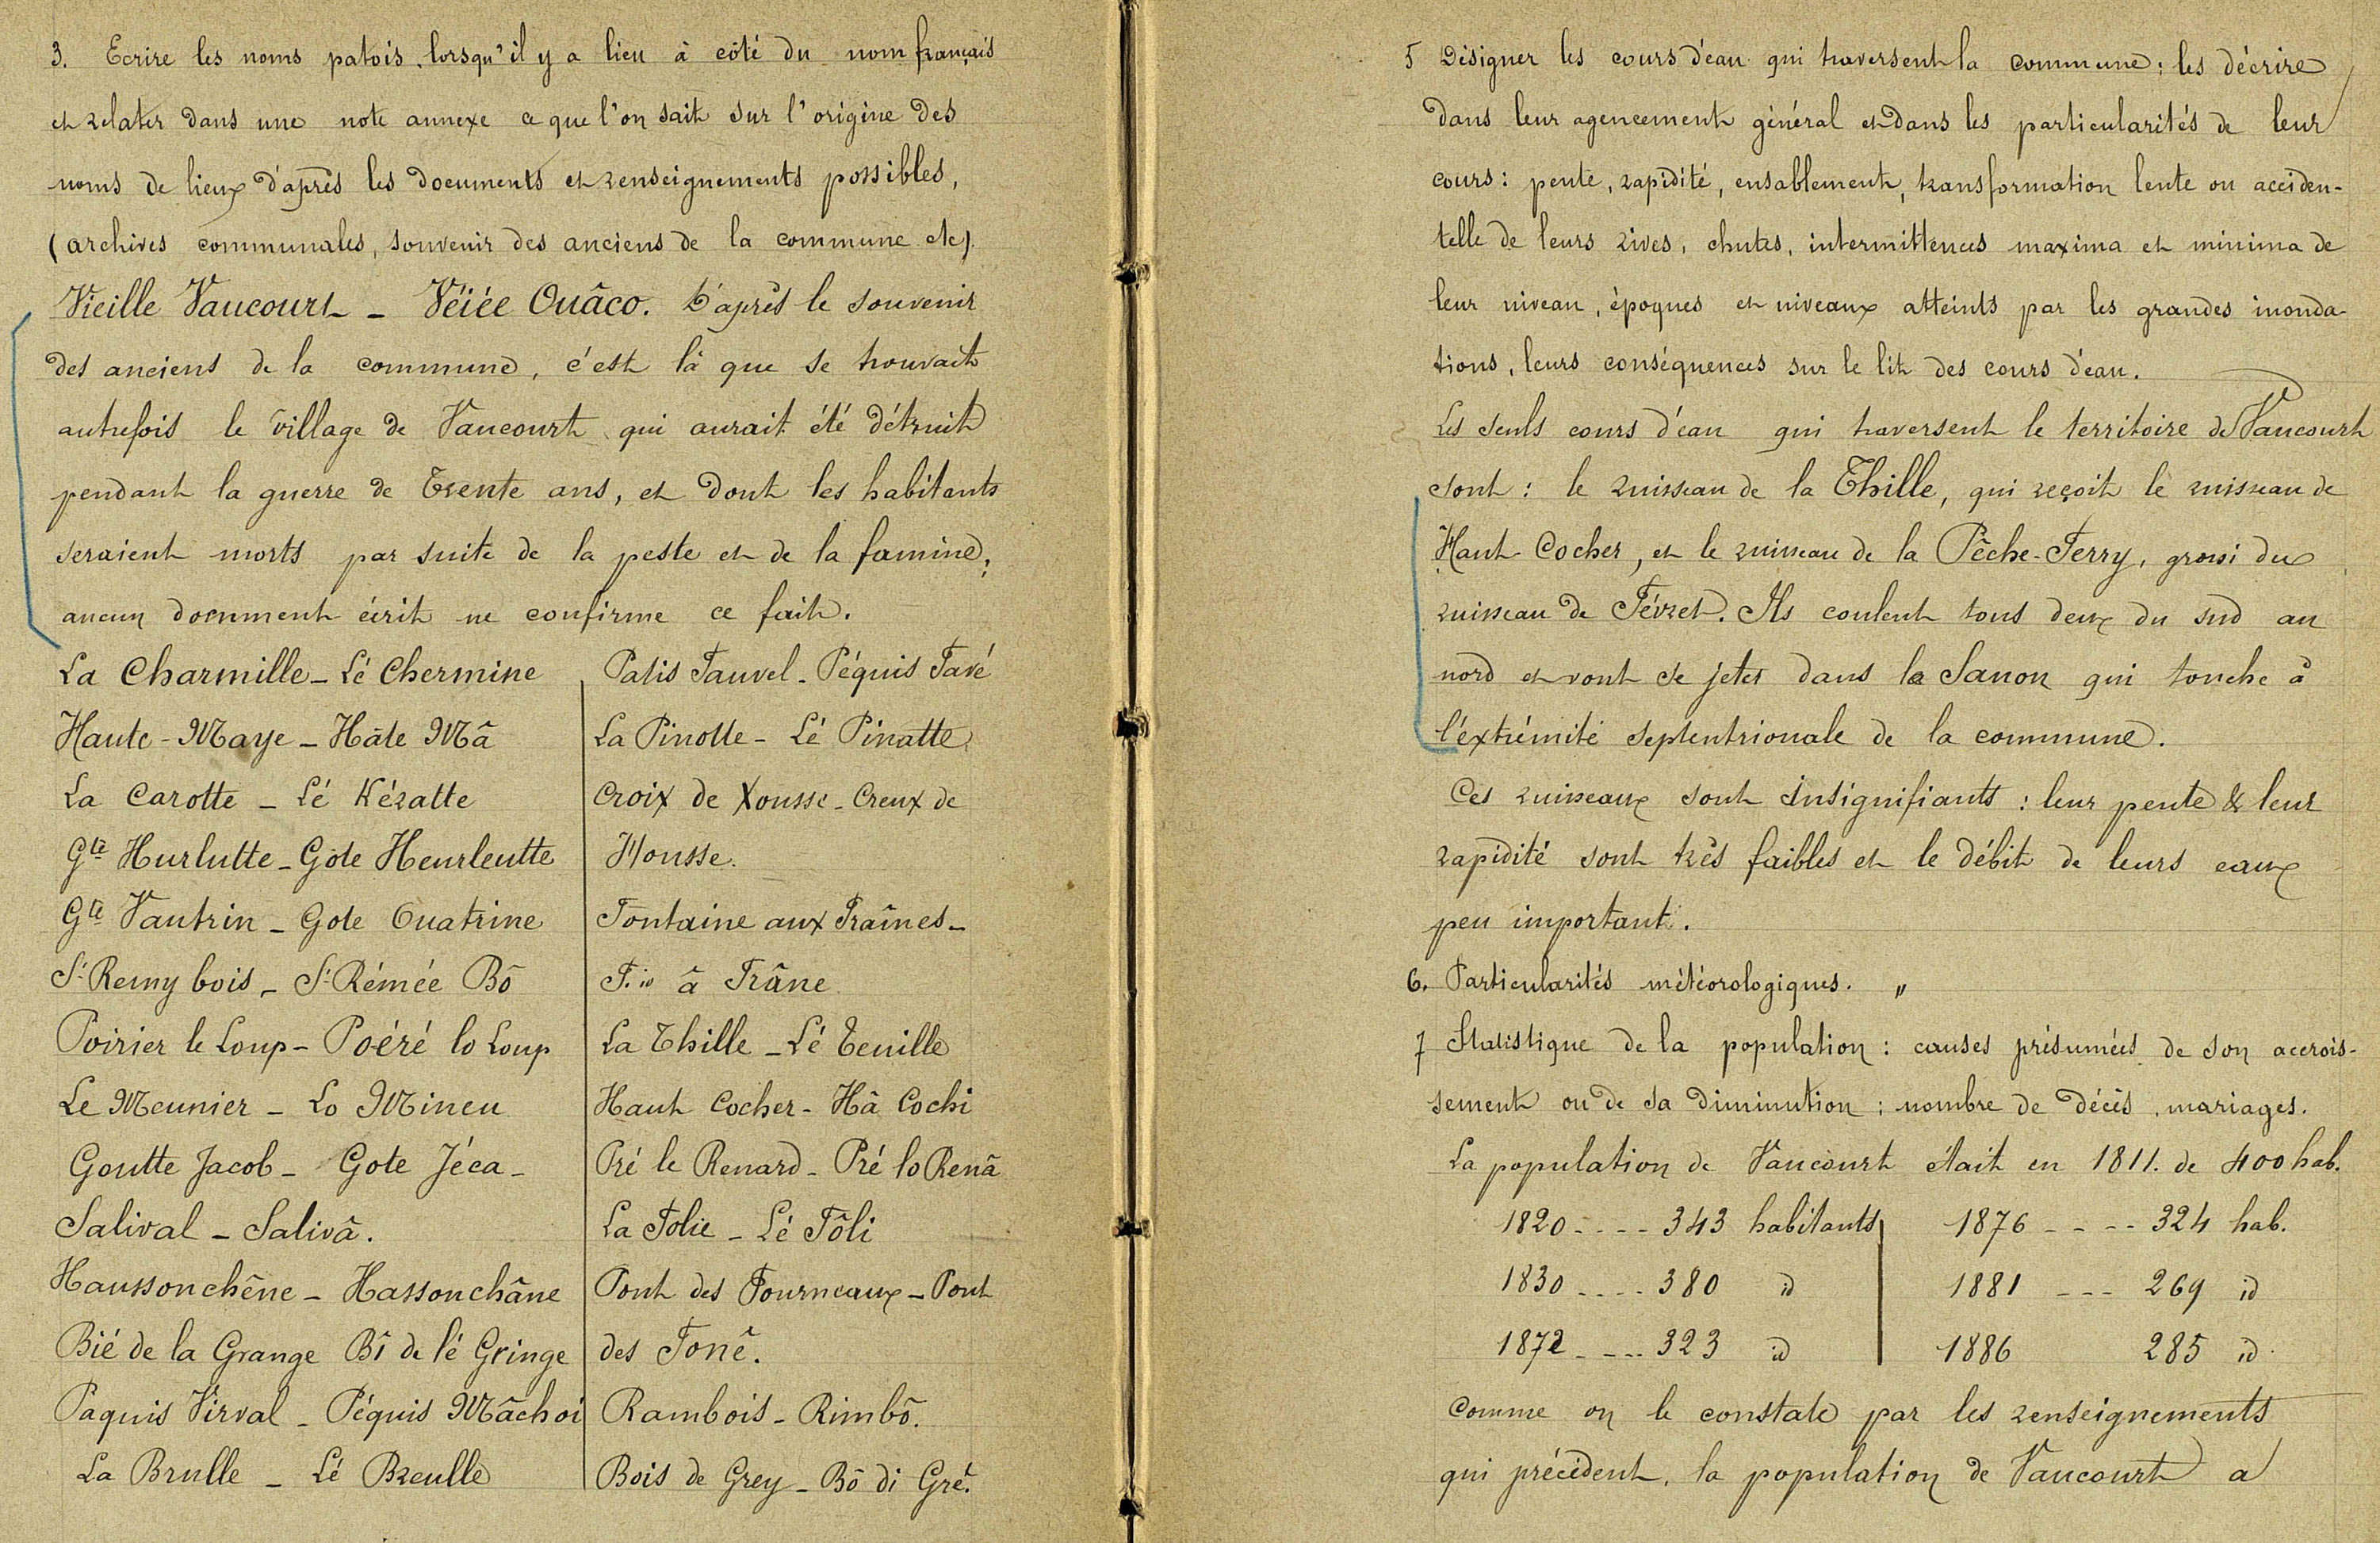 3. Ecrire les noms patois, lorsqu'il y a lieu à côté du nom français
et relater dans une note annexe ce que l'on sait sur l'origine des
noms de lieux d'après les documents et renseignements possibles,
(archives communales, souvenir des anciens de la commune etc).
Vieille Vaucourt - Véiée Ouâco. D'après le souvenir
des anciens de la commune, c'est là que se trouvait
autrefois le village de Vaucourt qui aurait été détruit
pendant la guerre de Trente ans, et dont les habitants
seraient morts par suite de la peste et de la famine;
aucun document écrit ne confirme ce fait.
La Charmille - Lé Chermine
Haute-Maye - Hâte Mâ
La Carotte - Lé Kératte
Gte Hurlutte - Gote Heurleutte
Gte Vautrin - Gote Ouatrine
St Remy bois - St Rémée Bô
Poirier le Loup - Poéré lo Loup
Le Meunier - Lo Mineu
Goutte Jacob - Gote Jéca -
Salival - Salivâ.
Haussonchêne - Hassonchâne
Bié de la Grange Bî de lé Gringe
Paquis Virval - Péquis Mâchoi
La Brulle - Lé Breulle
Patis Fauvel - Péquis Favé
La Pinotte - Lé Pinatte
Croix de Xousse - Creux de
Housse.
Fontaine aux Fraînes -
F. id à Frâne
La Thille - Lé Teuille
Haut Cocher - Hâ Cochi
Pré le Renard - Pré lo Renâ
La Folie - Lé Fôli
Pont des Fourneaux - Pont
des Fonê.
Rambois - Rimbô.
Bois de Grey - Bô di Grê.
5 Désigner les cours d'eau qui traversent la commune; les décrire
dans leur agencement général et dans les particularités de leur
cours: pente, rapidité, ensablement, transformation lente ou acciden-
telle de leurs rives, chutes, intermittences maxima et minima de
leur niveau, époques et niveaux atteints par les grandes inonda-
tions, leurs conséquences sur le lit des cours d'eau.
Les seuls cours d'eau qui traversent le territoire de Vaucourt
sont: le ruisseau de la Thille, qui reçoit le ruisseau de
Haut-Cocher, et le ruisseau de la Pêche-Ferry, grossi du
ruisseau de Févret. Ils coulent tous deux du sud au
nord et vont se jeter dans le Sanon qui touche à
l'éxtrémité septentrionale de la commune.
Ces ruisseaux sont insignifiants: leur pente & leur
rapidité sont très faibles et le débit de leurs eaux
peu important.
6. Particularités météorologiques. "
7 Statistique de la population: causes présumées de son accrois-
sement ou de sa diminution; nombre de décès, mariages.
La population de Vaucourt était en 1811. de 400 hab.
1820 - - - - 343 habitants
1830 - - - - 380 id
1872 - - - - 323 id
1876 - - - - 324 hab.
1881 - - - 269 id
1886 285 id.
Comme on le constate par les renseignements
qui précèdent, la population de Vaucourt a